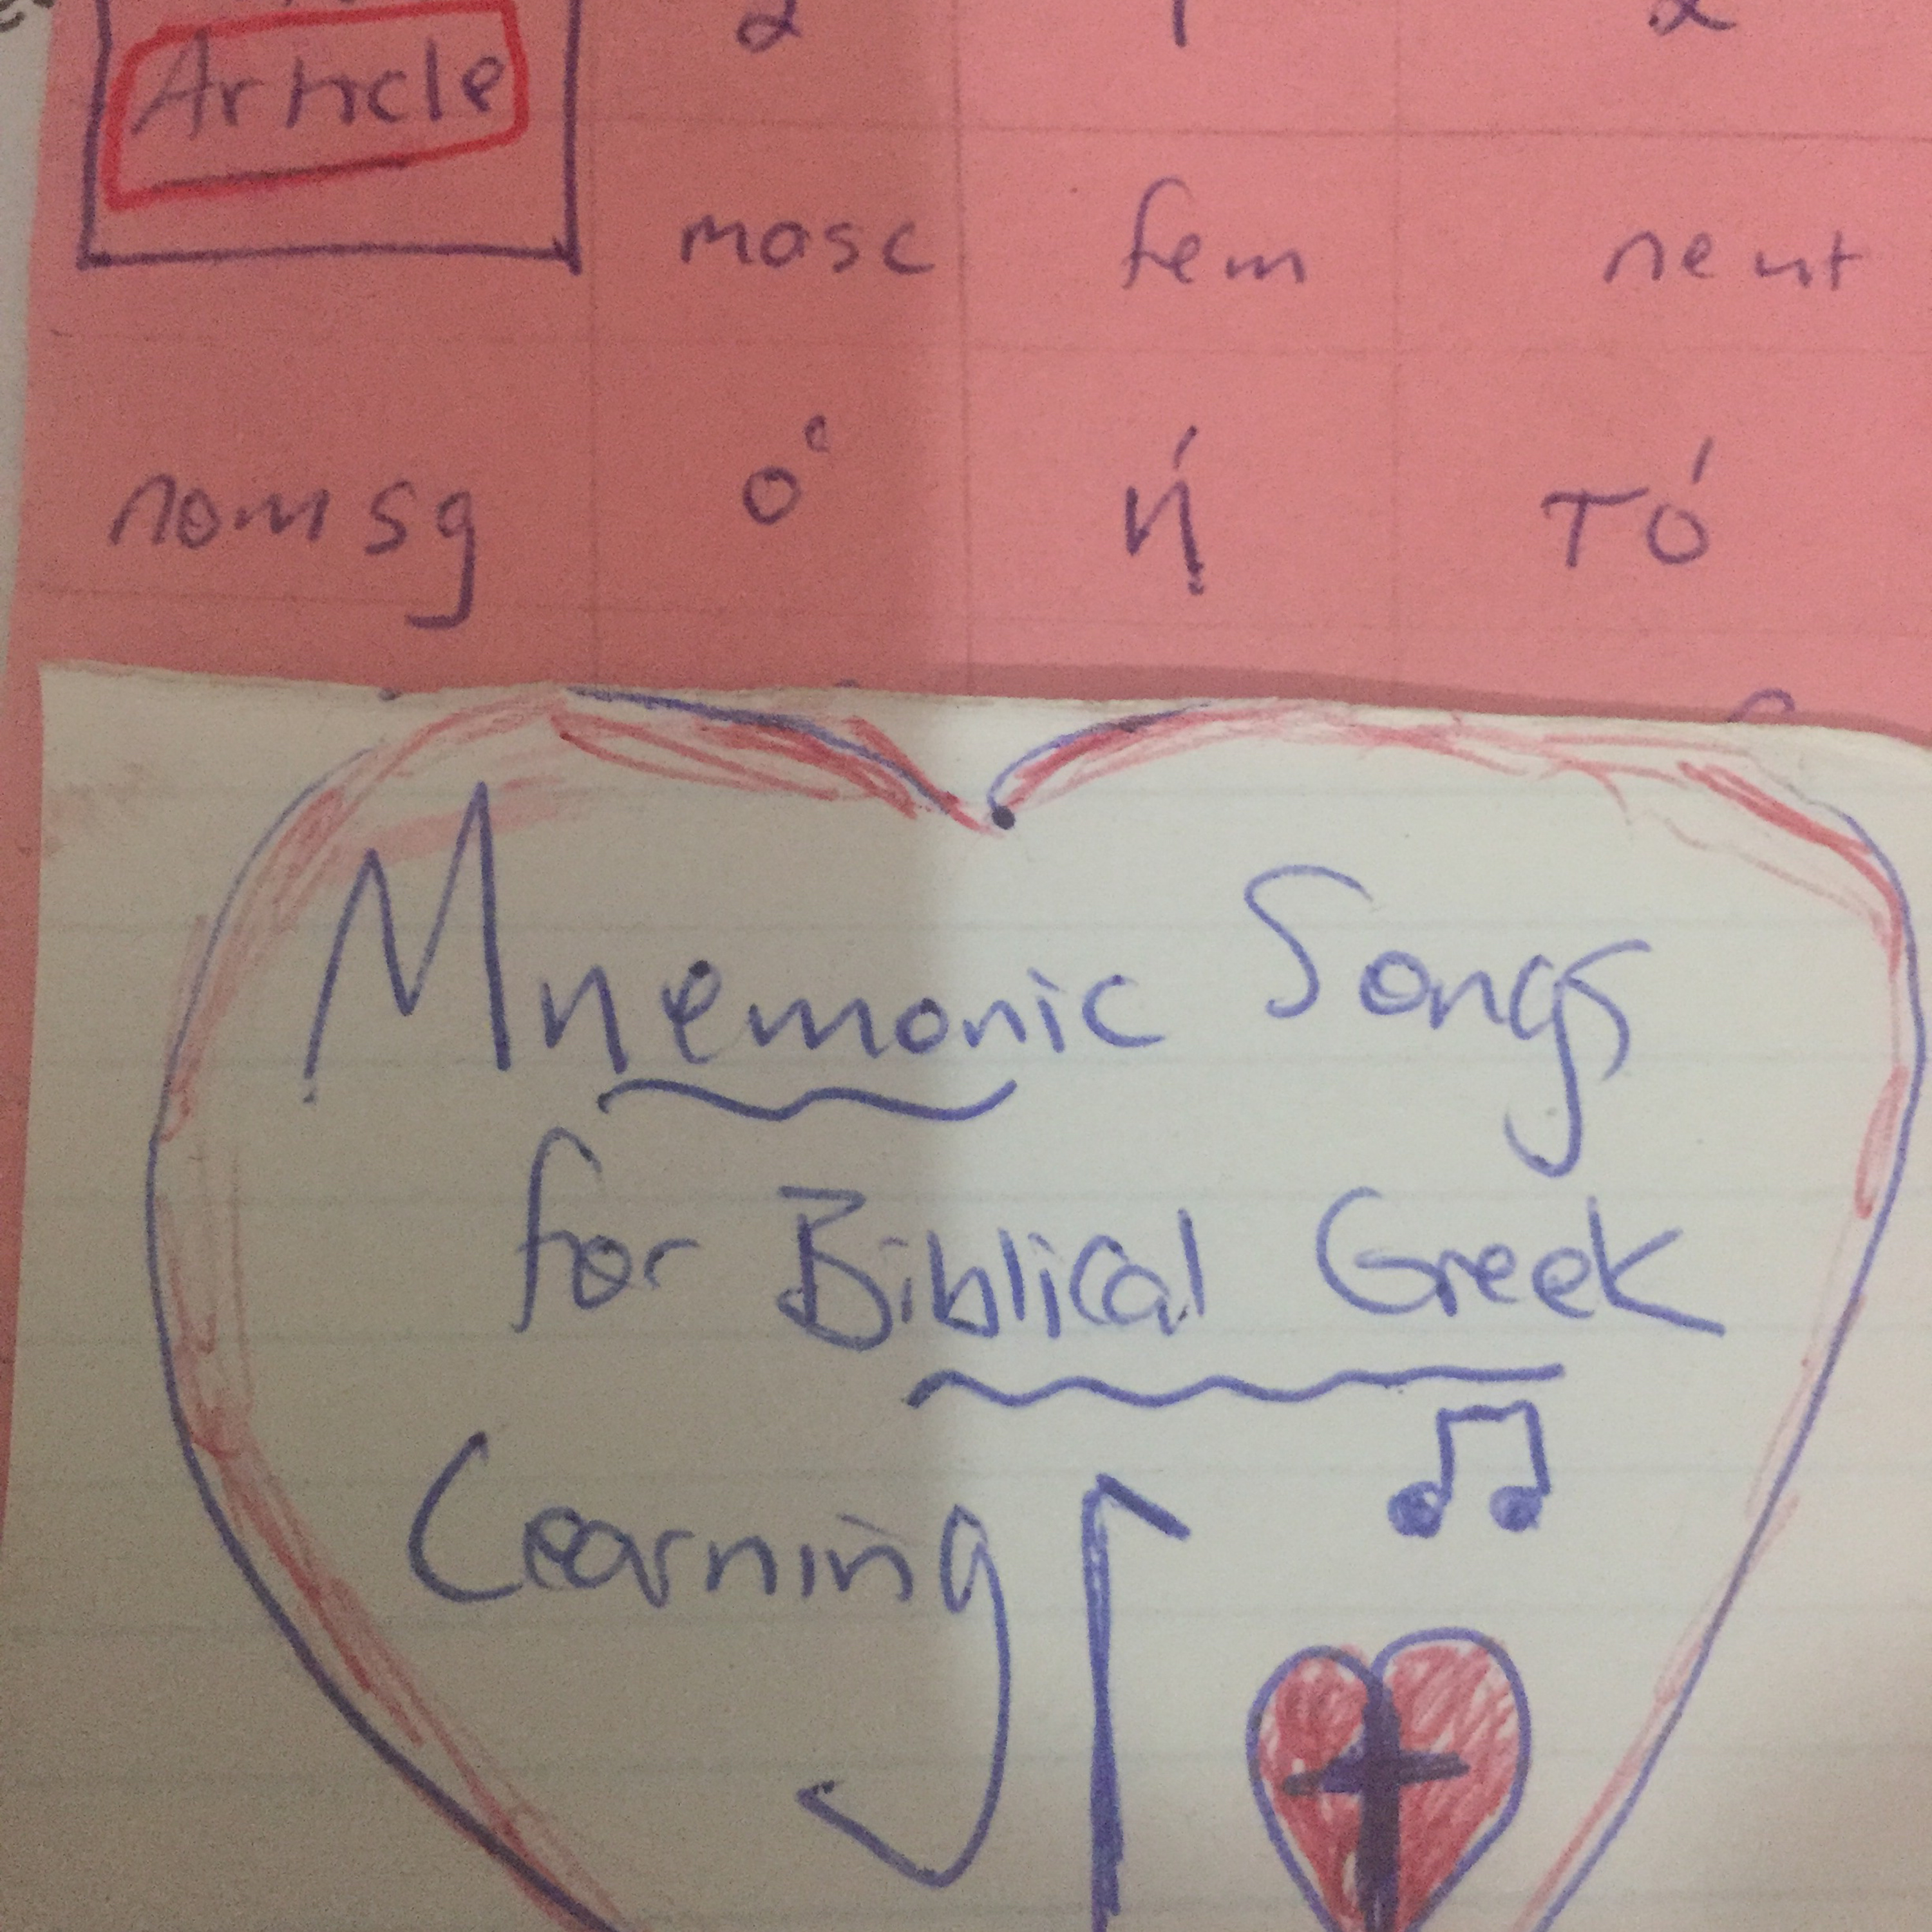 Article 2 1 2
masc fem neut
nom sg ὁ ή τό
Mnemonic Songs
for Biblical Greek
Learning